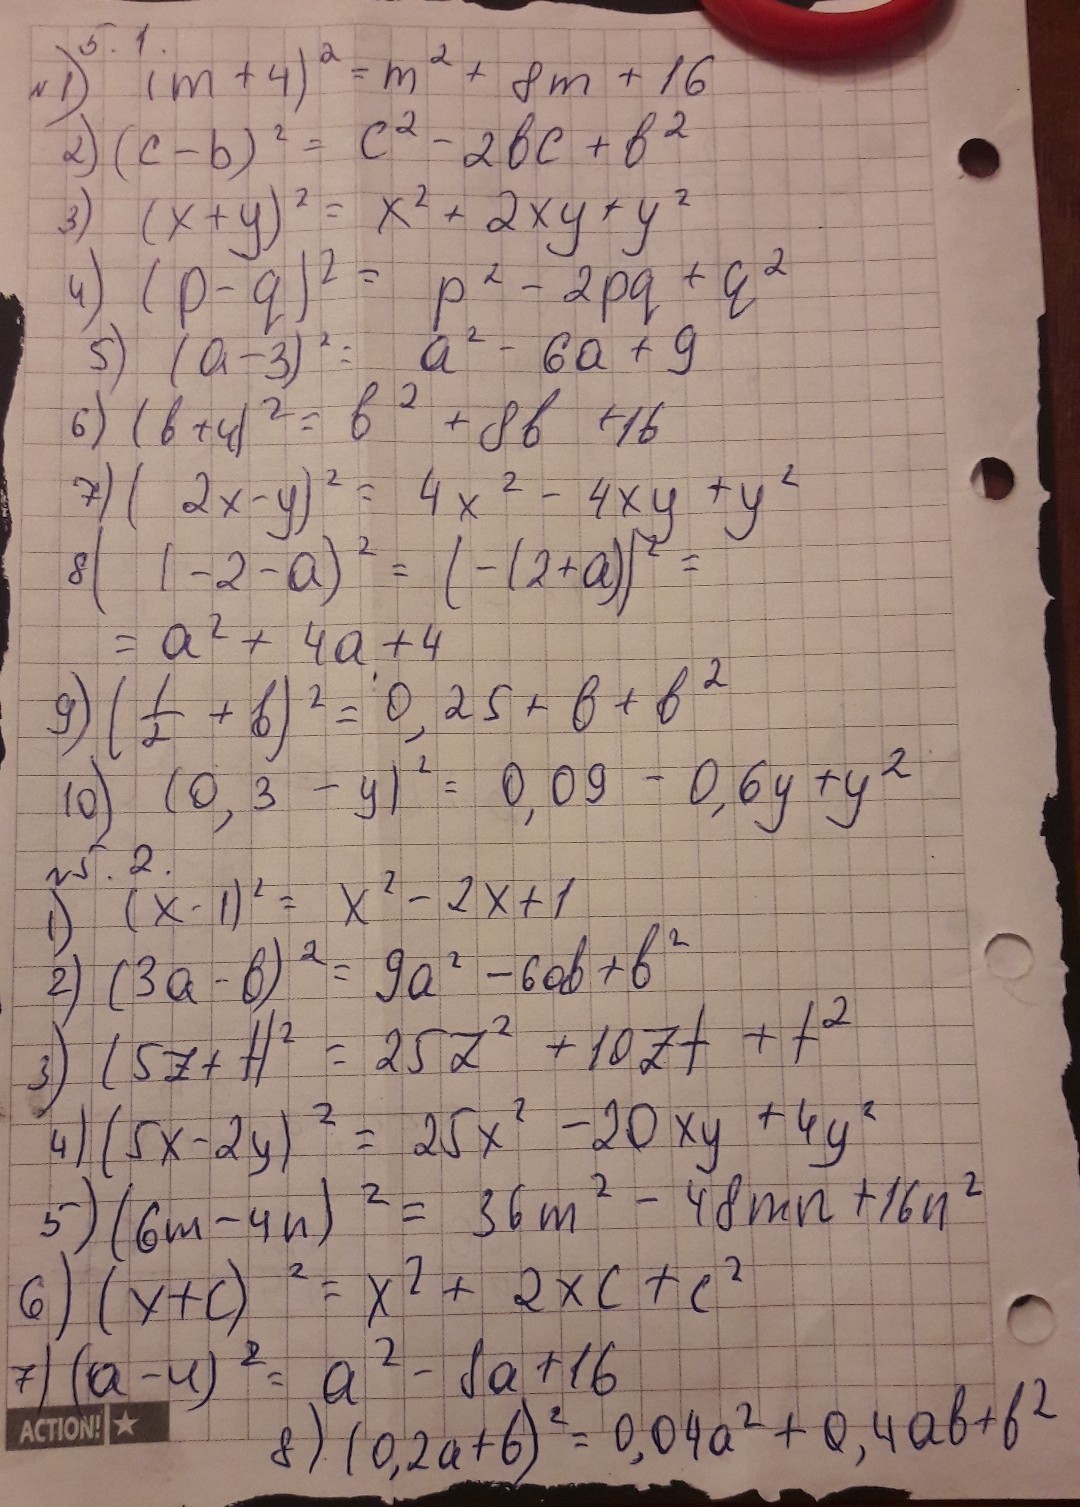 5.1.
№1) (m+4)² = m² + 8m + 16
2) (c-b)² = c² - 2bc + b²
3) (x+y)² = x² + 2xy + y²
4) (p-q)² = p² - 2pq + q²
5) (a-3)² = a² - 6a + 9
6) (b+4)² = b² + 8b + 16
7) (2x-y)² = 4x² - 4xy + y²
8) (-2-a)² = (-(2+a))² =
= a² + 4a + 4
9) (1/2 + b)² = 0,25 + b + b²
10) (0,3 - y)² = 0,09 - 0,6y + y²
№5.2.
1) (x-1)² = x² - 2x + 1
2) (3a-b)² = 9a² - 6ab + b²
3) (5z+t)² = 25z² + 10zt + t²
4) (5x-2y)² = 25x² - 20xy + 4y²
5) (6m-4n)² = 36m² - 48mn + 16n²
6) (x+c)² = x² + 2xc + c²
7) (a-4)² = a² - 8a + 16
ACTION!
8) (0,2a+b)² = 0,04a² + 0,4ab + b²